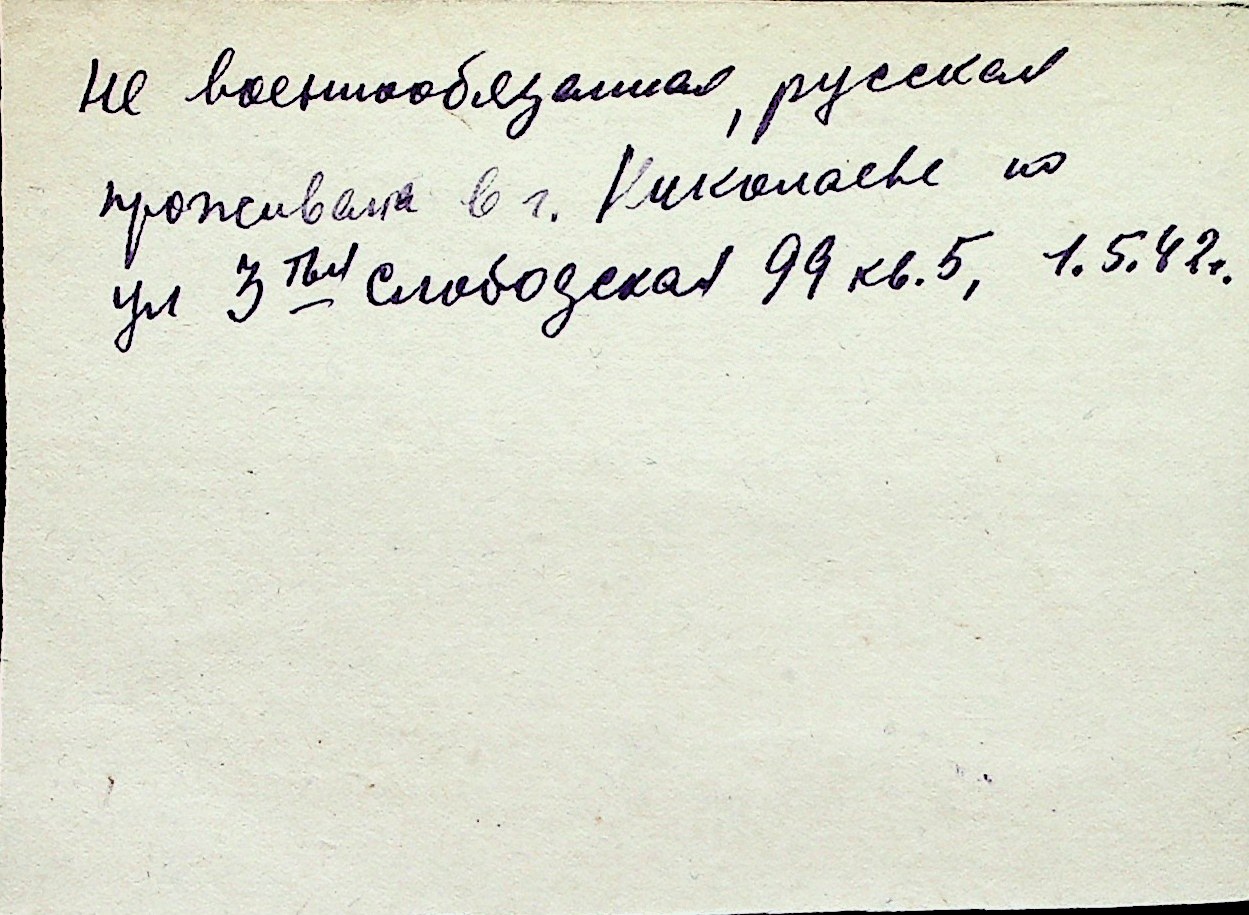 не военнообязанная, русская
проживала в г. Николаеве по
ул 3тья слободская 99 кв. 5, 1.5.42г.